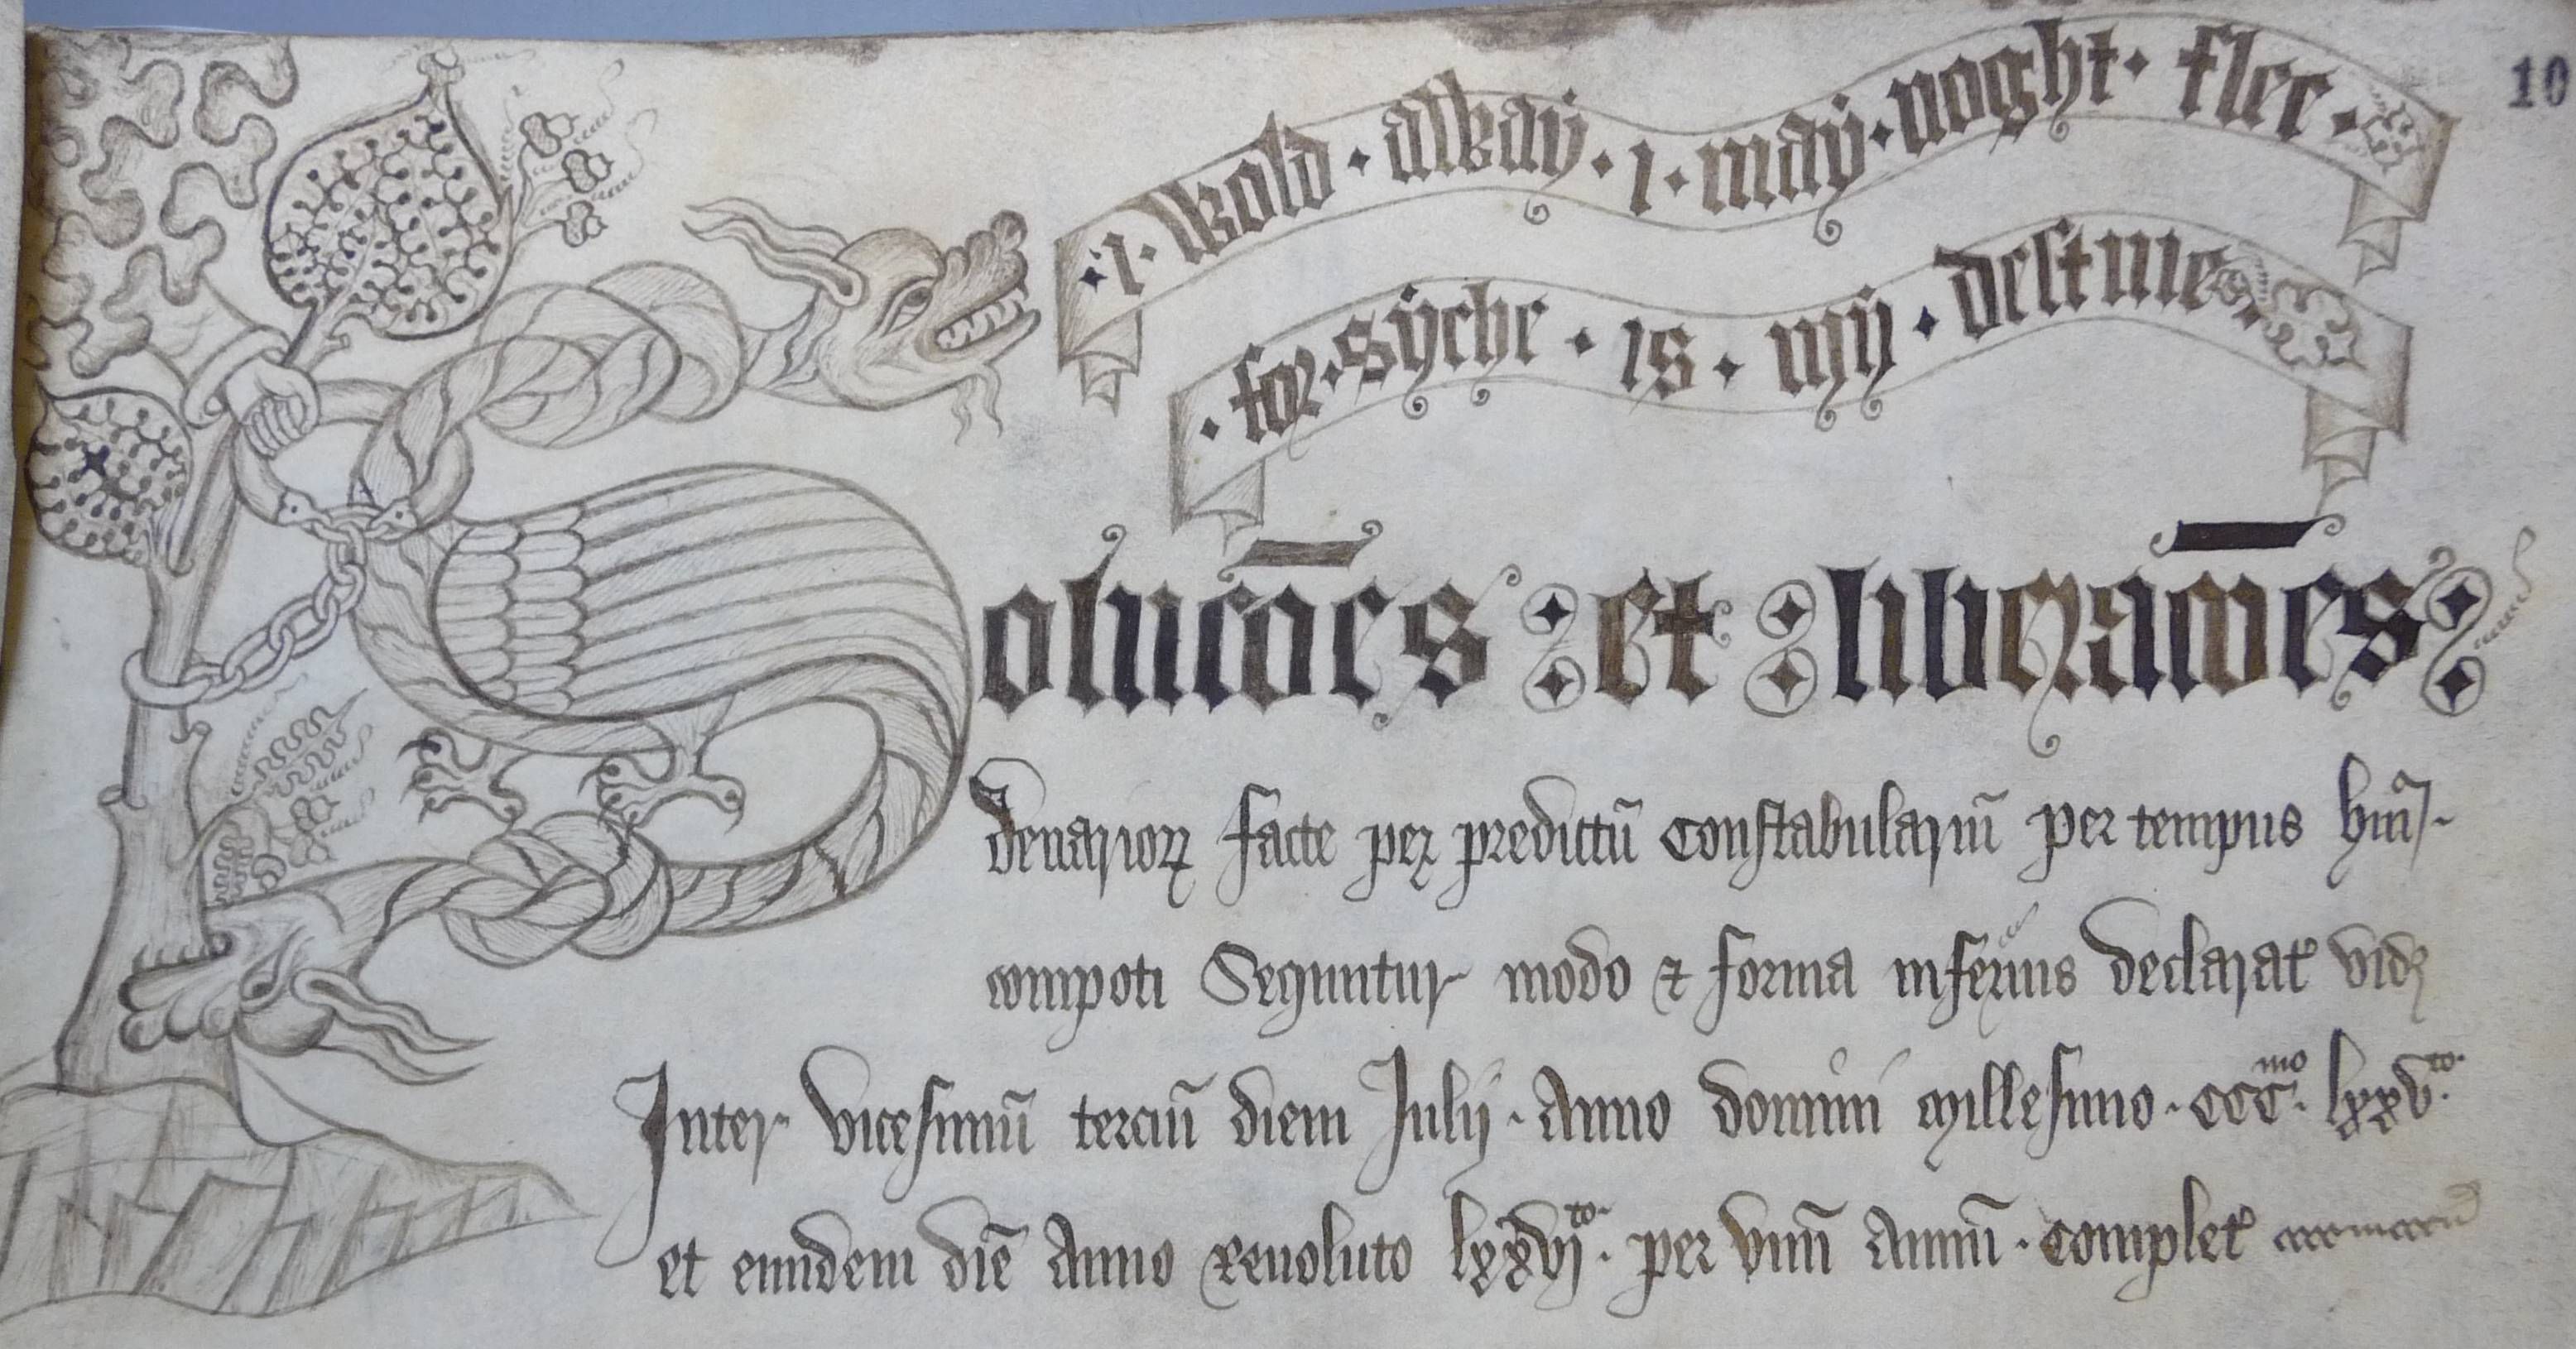 10
· i · wold · alway · i · may · noght · flee ·
· for · syche · is · my · destine ·
Soluco̅es et libera̅co̅es
denarioꝝ facte per predictū Constabulariū per tempus huiꝰ
compoti Sequntur modo ⁊ forma inferius declarat' vidꝫ
Inter vicesimū terciū diem Julij · Anno domini millesimo · CCCᵐᵒ · lxxvᵗᵒ ·
et eundem diē Anno reuoluto lxxviᵗᵒ · per vnū Annū · complet'